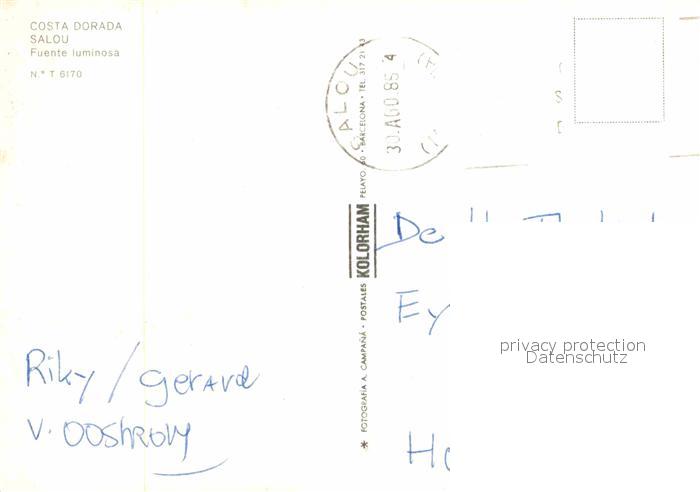 COSTA DORADA
SALOU
Fuente luminosa
N.° T 6170
SALOU
30.AGO.85.
* FOTOGRAFÍA A. CAMPAÑÁ • POSTALES KOLORHAM PELAYO, 60 • BARCELONA • TEL. 317 21 43
De
Ey
privacy protection
Datenschutz
Riky / Gerard
V. OOSTROM